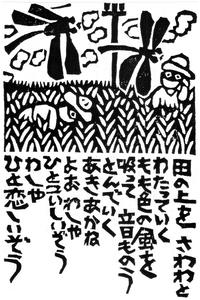 田の上を さわわと
わたっていく
もも色の風を
吸って 音ものう
とんでいく
あきあかね
よおわしゃ
ひとこいしいぞう
わしゃ
ひと恋しいぞう